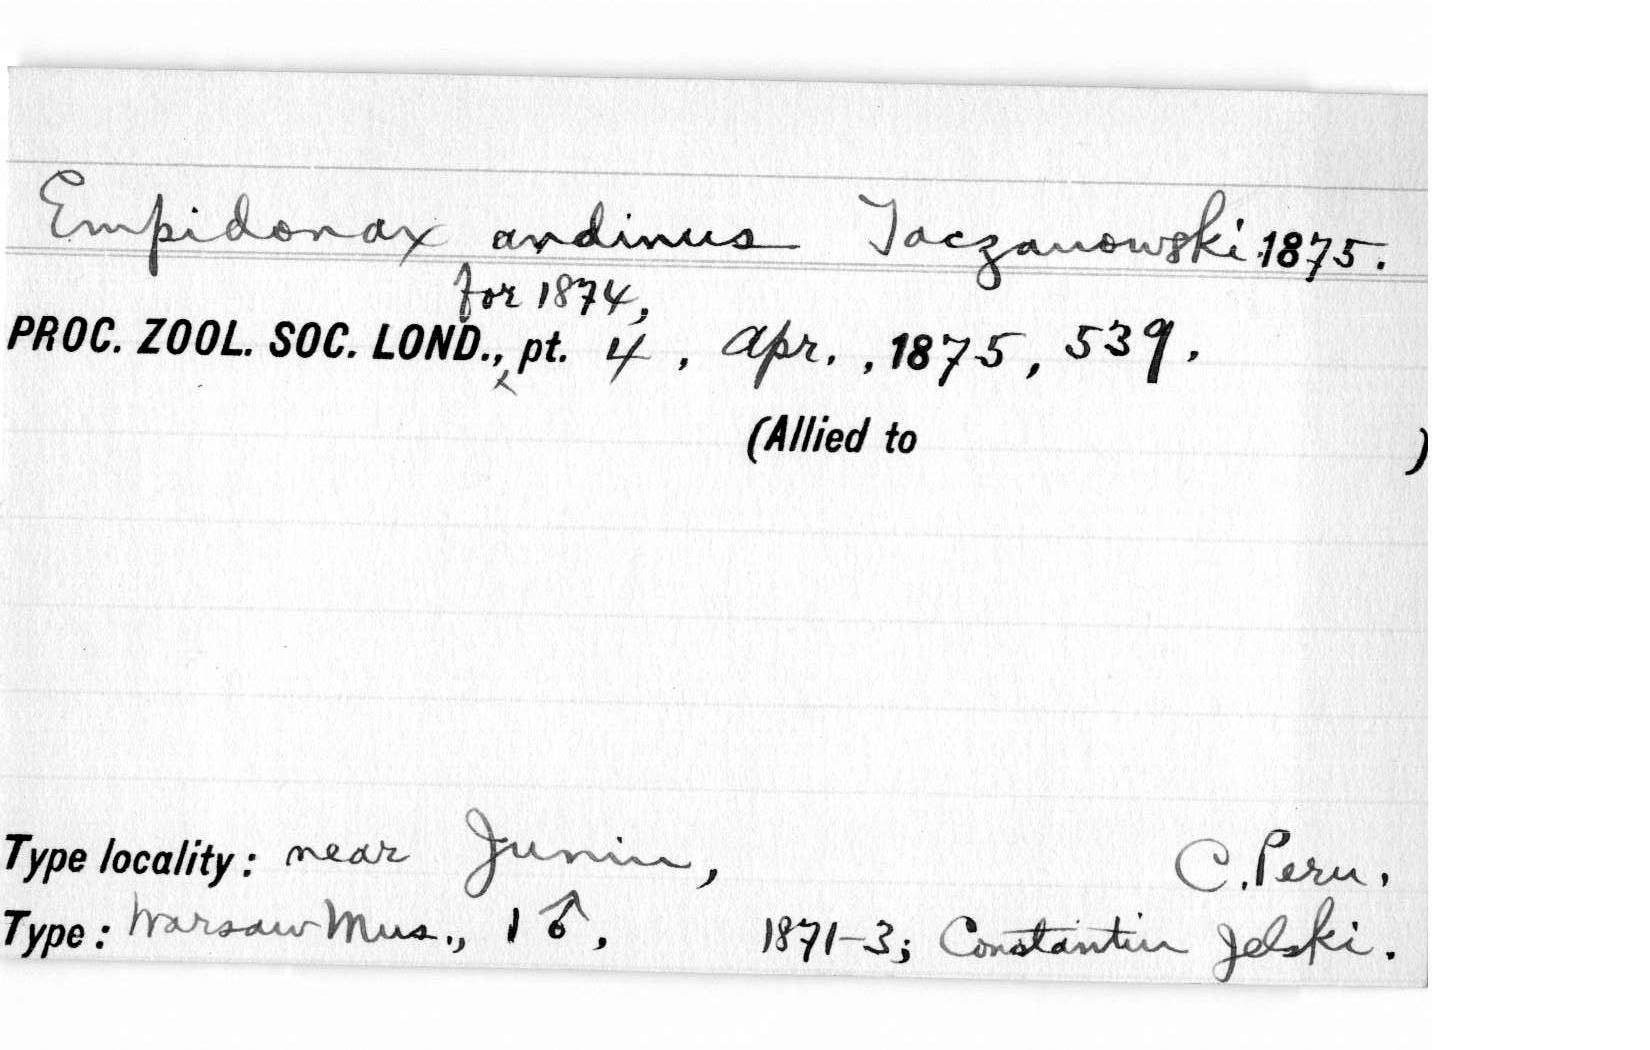 Empidonax andinus Taczanowski 1875.
for 1874,
PROC. ZOOL. SOC. LOND., pt. 4, Apr., 1875, 539.
(Allied to )
Type locality: near Junin, C. Peru.
Type: Warsaw Mus., 1 ♂, 1871-3; Constantin Jelski.